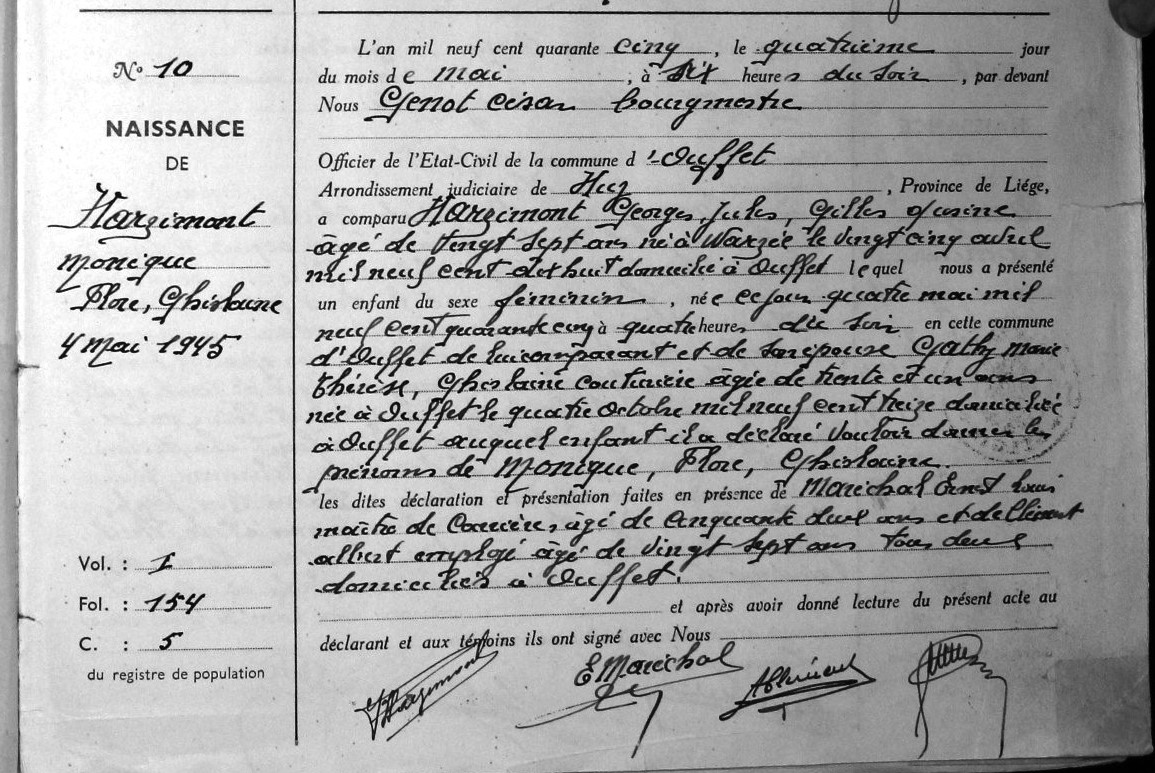 N° 10
NAISSANCE
DE
Harzimont
Monique
Flore, Ghislaine
4 Mai 1945
Vol. : 1
Fol. : 154
C. : 5
du registre de population
L'an mil neuf cent quarante cinq, le quatrième jour
du mois de mai, à six heures du soir, par devant
Nous Genot César bourgmestre
Officier de l'Etat-Civil de la commune d'Ouffet
Arrondissement judiciaire de Huy, Province de Liége,
a comparu Harzimont Georges, Jules, Gilles
âgé de vingt sept ans né à Warzée le vingt cinq avril
mil neuf cent dix huit domicilié à Ouffet lequel nous a présenté
un enfant du sexe féminin, née ce jour quatre mai mil
neuf cent quarante cinq à quatre heures du soir en cette commune
d'Ouffet de lui comparant et de son épouse Gathy Marie
Thérèse, Ghislaine couturière âgée de trente et un ans
née à Ouffet le quatre octobre mil neuf cent treize domiciliée
à Ouffet auquel enfant il a déclaré vouloir donner les
prénoms de Monique, Flore, Ghislaine.
les dites déclaration et présentation faites en présence de Maréchal Ernest Louis
maître de carrières, âgé de cinquante deux ans et de Clément
albert employé âgé de vingt sept ans tous deux
domiciliés à Ouffet.
et après avoir donné lecture du présent acte au
déclarant et aux témoins ils ont signé avec Nous
Harzimont
E Maréchal
A Clément